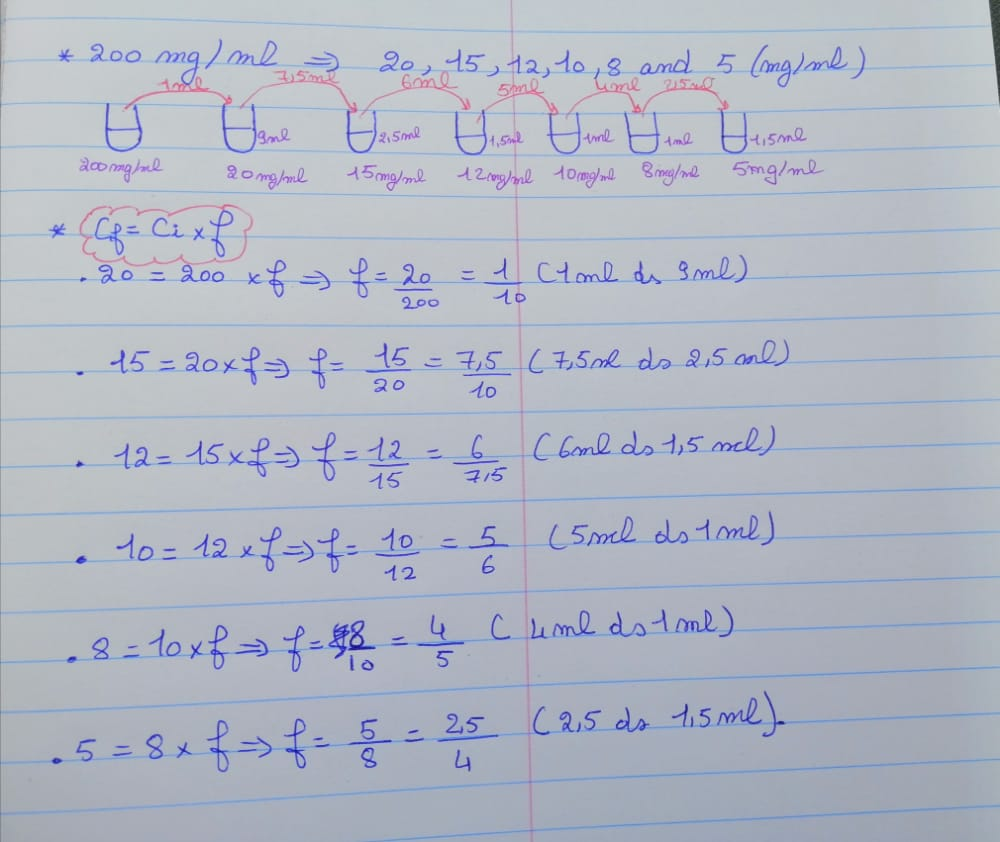 * 200 mg/ml ⇒ 20, 15, 12, 10, 8 and 5 (mg/ml)
1ml 7,5ml 6ml 5ml 4ml 2,5ml
9ml 2,5ml 1,5ml 1ml 1ml 1,5ml
200mg/ml 20mg/ml 15mg/ml 12mg/ml 10mg/ml 8mg/ml 5mg/ml
* Cf = Ci x f
. 20 = 200 x f ⇒ f = 20/200 = 1/10 (1ml ds 9ml)
. 15 = 20 x f ⇒ f = 15/20 = 7,5/10 (7,5ml ds 2,5 ml)
. 12 = 15 x f ⇒ f = 12/15 = 6/7,5 (6ml ds 1,5 ml)
. 10 = 12 x f ⇒ f = 10/12 = 5/6 (5ml ds 1ml)
. 8 = 10 x f ⇒ f = 8/10 = 4/5 (4ml ds 1ml)
. 5 = 8 x f ⇒ f = 5/8 = 2,5/4 (2,5 ds 1,5ml).